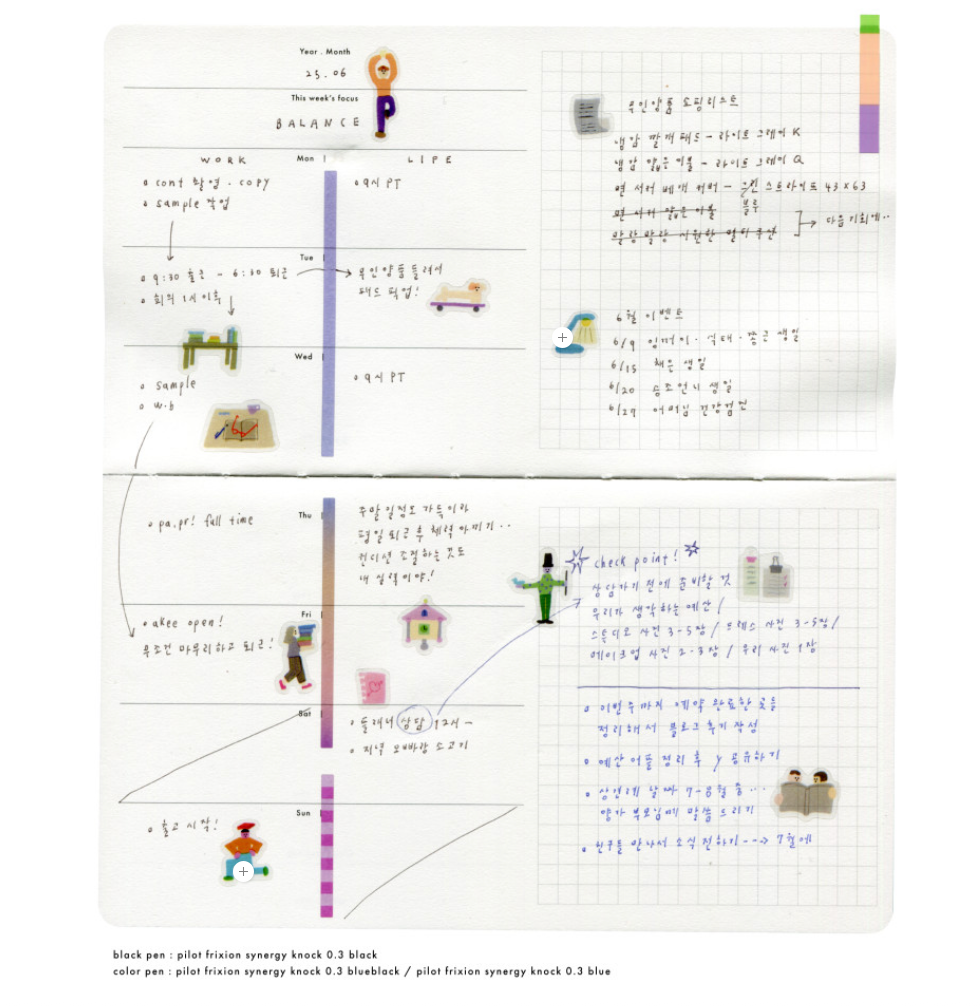 Year . Month
23. 06
This week's focus
BALANCE
WORK
Mon
LIFE
cont 촬영 . copy
sample 작업
9시 PT
Tue
9:30 출근 - 6:30 퇴근
회의 1시 이후
무인양품 들려서
패드 픽업!
Wed
sample
w.b
9시 PT
무인양품 쇼핑리스트
냉감 깔개 패드 - 라이트 그레이 K
냉감 얇은 이불 - 라이트 그레이 Q
면 서커 베개 커버 - 그린 스트라이프 43 x 63
블루
면 서커 얇은 이불
말랑말랑 시원한
다음 기회에..
6월 이벤트
6/9 생일
6/15 채은 생일
6/20 승조언니 생일
6/29 어머님 건강검진
Thu
pa.pr! full time
주말 일정도 가득이라
평일 퇴근 후 체력 아끼기..
컨디션 조절하는 것도
내 실력이야!
Fri
akee open!
무조건 마무리하고 퇴근!
Sat
플래너 상담 12시 -
저녁 오빠랑 소고기
Sun
출고 시작!
check point!
상담가기 전에 준비할 것
우리가 생각하는 예산 /
스튜디오 사진 3-5장 / 드레스 사진 3-5장 /
메이크업 사진 2-3장 / 우리 사진 1장
이번주까지 예약 완료한 곳들
정리해서 블로그 후기 작성
예산 어플 정리 후 y 공유하기
상견례 날짜 7-8월 중...
양가 부모님께 말씀드리기
친구들 만나서 소식 전하기 --→ 7월에
black pen : pilot frixion synergy knock 0.3 black
color pen : pilot frixion synergy knock 0.3 blueblack / pilot frixion synergy knock 0.3 blue